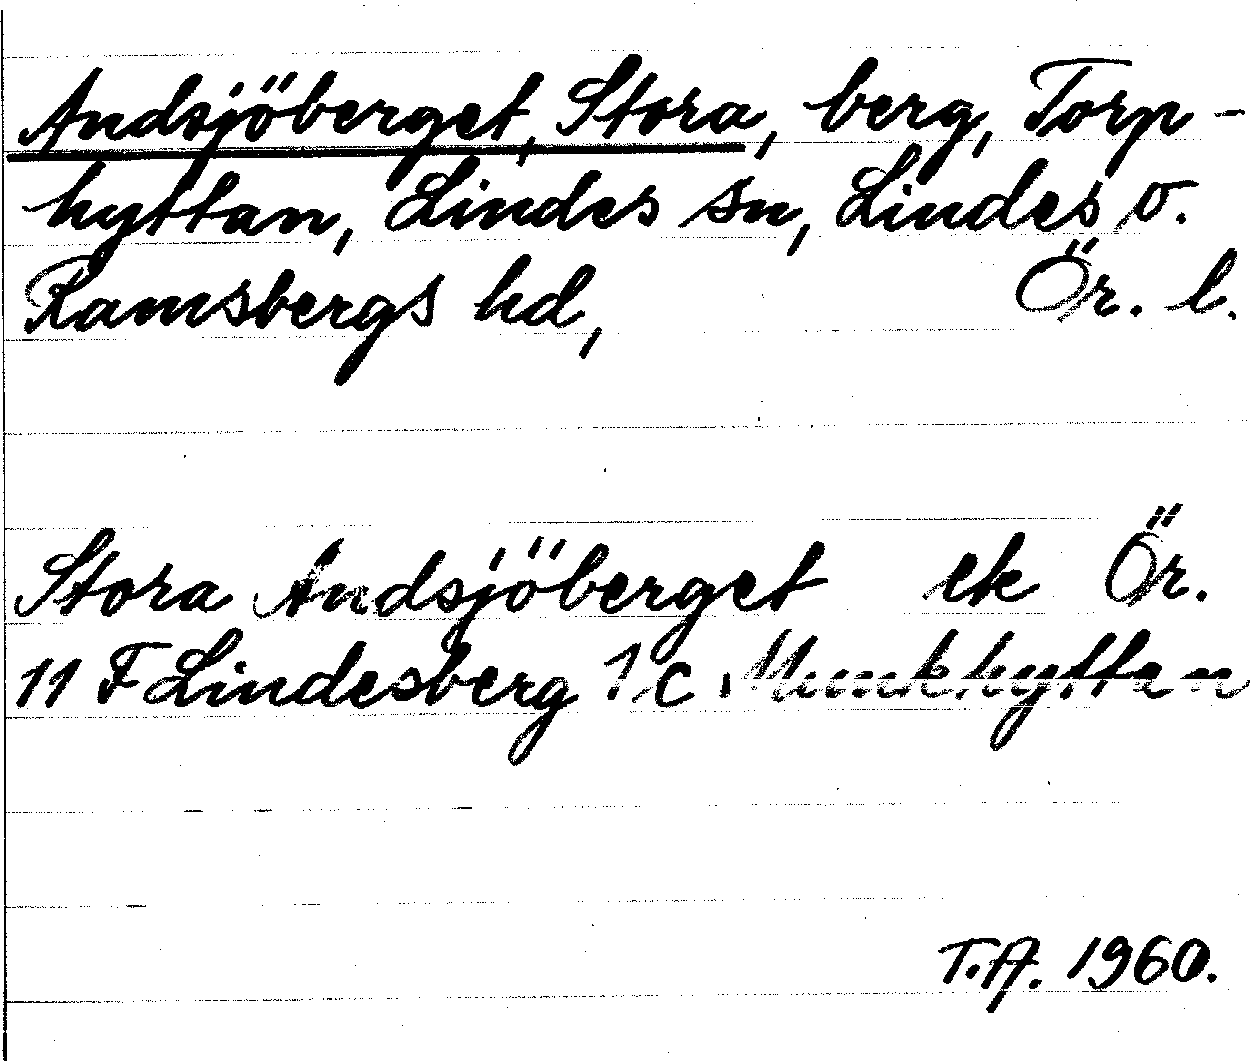 Andsjöberget, Stora, berg, Torp-
hyttan, Lindes sn, Lindes o.
Ramsbergs hd, Ör. l.
Stora Andsjöberget ek Ör.
11 F Lindesberg 1 c Munkhyttan
T.A. 1960.